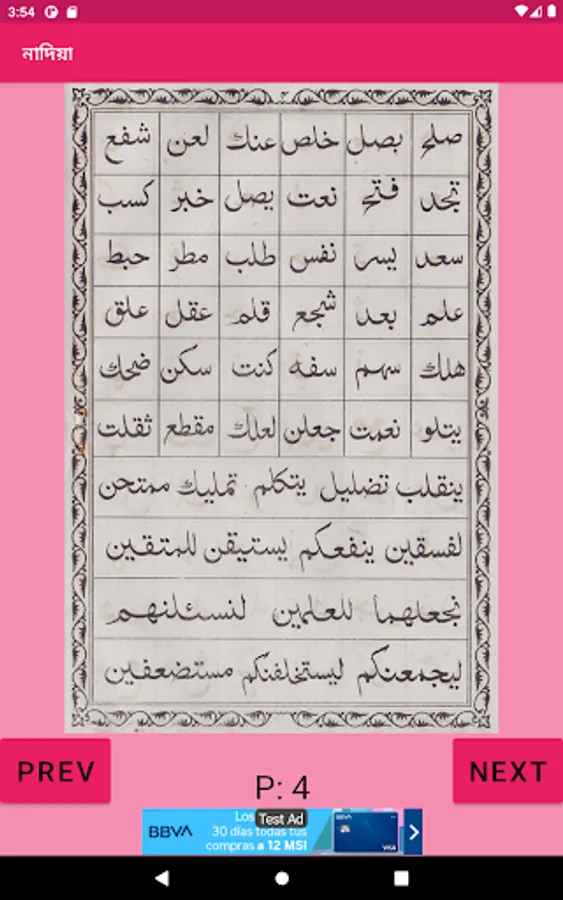 3:54
নাদিয়া
صلح بصل خلص عنك لعن شفع
تجد فتح نعت يصل خبر كسب
سعد يسر نفس طلب مطر حبط
علم بعد شجع قلم عقل علق
هلك سهم سفه كنت سكن ضحك
يتلو نعمت جعلن لعلك مقطع ثقلت
ينقلب تضليل يتكلم تمليك ممتحن
لفسقين ينفعكم يستيقن للمتقين
نجعلهما للعلمين لنسئلنهم
ليجمعنكم ليستخلفنكم مستضعفين
PREV
P: 4
NEXT
BBVA
Los
Test Ad
30 días todas tus
compras a 12 MSI
BBVA
VISA